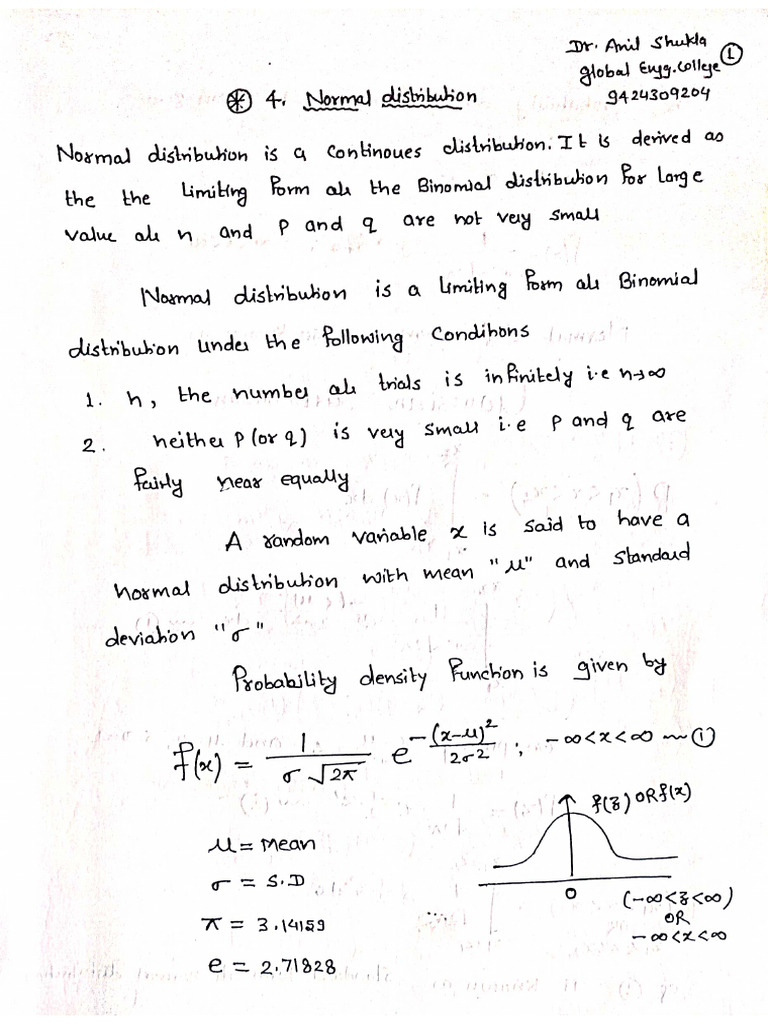 Dr. Anil Shukla
Global Engg. College ①
9424309204
⊛ 4. Normal distribution
Normal distribution is a continoues distribution. It is derived as
the the limiting form of the Binomial distribution for large
value of n and p and q are not very small
Normal distribution is a limiting form of Binomial
distribution under the following conditions
1. n, the number of trials is infinitely i.e n→∞
2. neither p (or q) is very small i.e p and q are
fairly near equally
A random variable x is said to have a
normal distribution with mean "μ" and standard
deviation "σ"
Probability density function is given by
f(x) = 1/(σ√2π) e^(-(x-μ)²/2σ²) ; -∞<x<∞ — ①
f(z) OR f(x)
μ = Mean
σ = S.D
0
(-∞<z<∞)
OR
-∞<x<∞
π = 3.14159
e = 2.71828